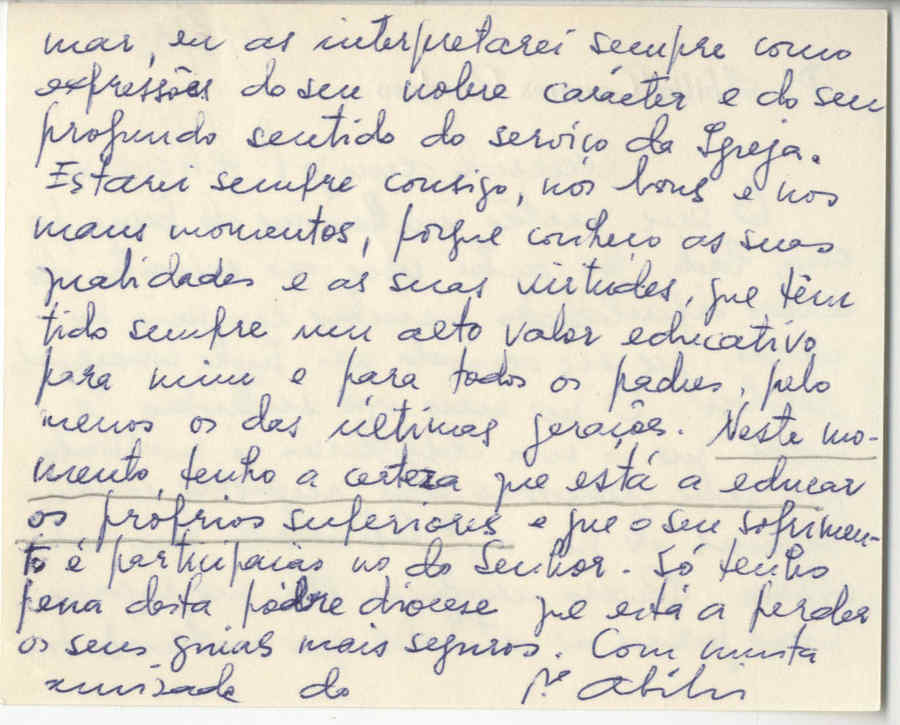 mar, eu as interpretarei sempre como
expressões do seu nobre carácter e do seu
profundo sentido do serviço da Igreja.
Estarei sempre consigo, nos bons e nos
maus momentos, porque conheço as suas
qualidades e as suas virtudes, que têm
tido sempre um alto valor educativo
para mim e para todos os padres, pelo
menos os das últimas gerações. Neste mo-
mento, tenho a certeza que está a educar
os próprios superiores e que o seu sofrimen-
to é participação no do Senhor. Só tenho
pena desta pobre diocese que está a perder
os seus guias mais seguros. Com muita
amizade do P.e Abílio